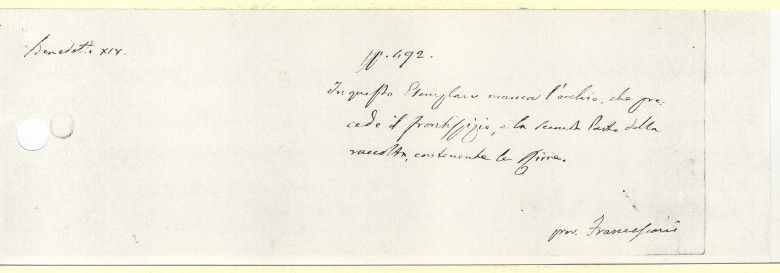 Benedetto XIV.
pp. 492.
In questo Esemplare manca l'occhio, che pre:
cede il frontispizio, e la seconda Parte della
raccolta, contenente le Rime.
prov. Francesiani